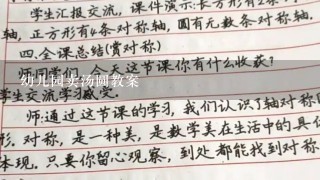 学生汇报交流，课件演示：长方形有2条对
轴，正方形有4条对称轴，圆有无数条对称轴
四.全课总结(赏对称)
今天这节课你有什么收获？
幼儿园卖汤圆教案
学生交流学习
师：通过这节课的学习，我们认识了轴对称图
形.对称，是一种美，是数学美在生活中的具体
体现.只要你留心观察，到处都能找到对称